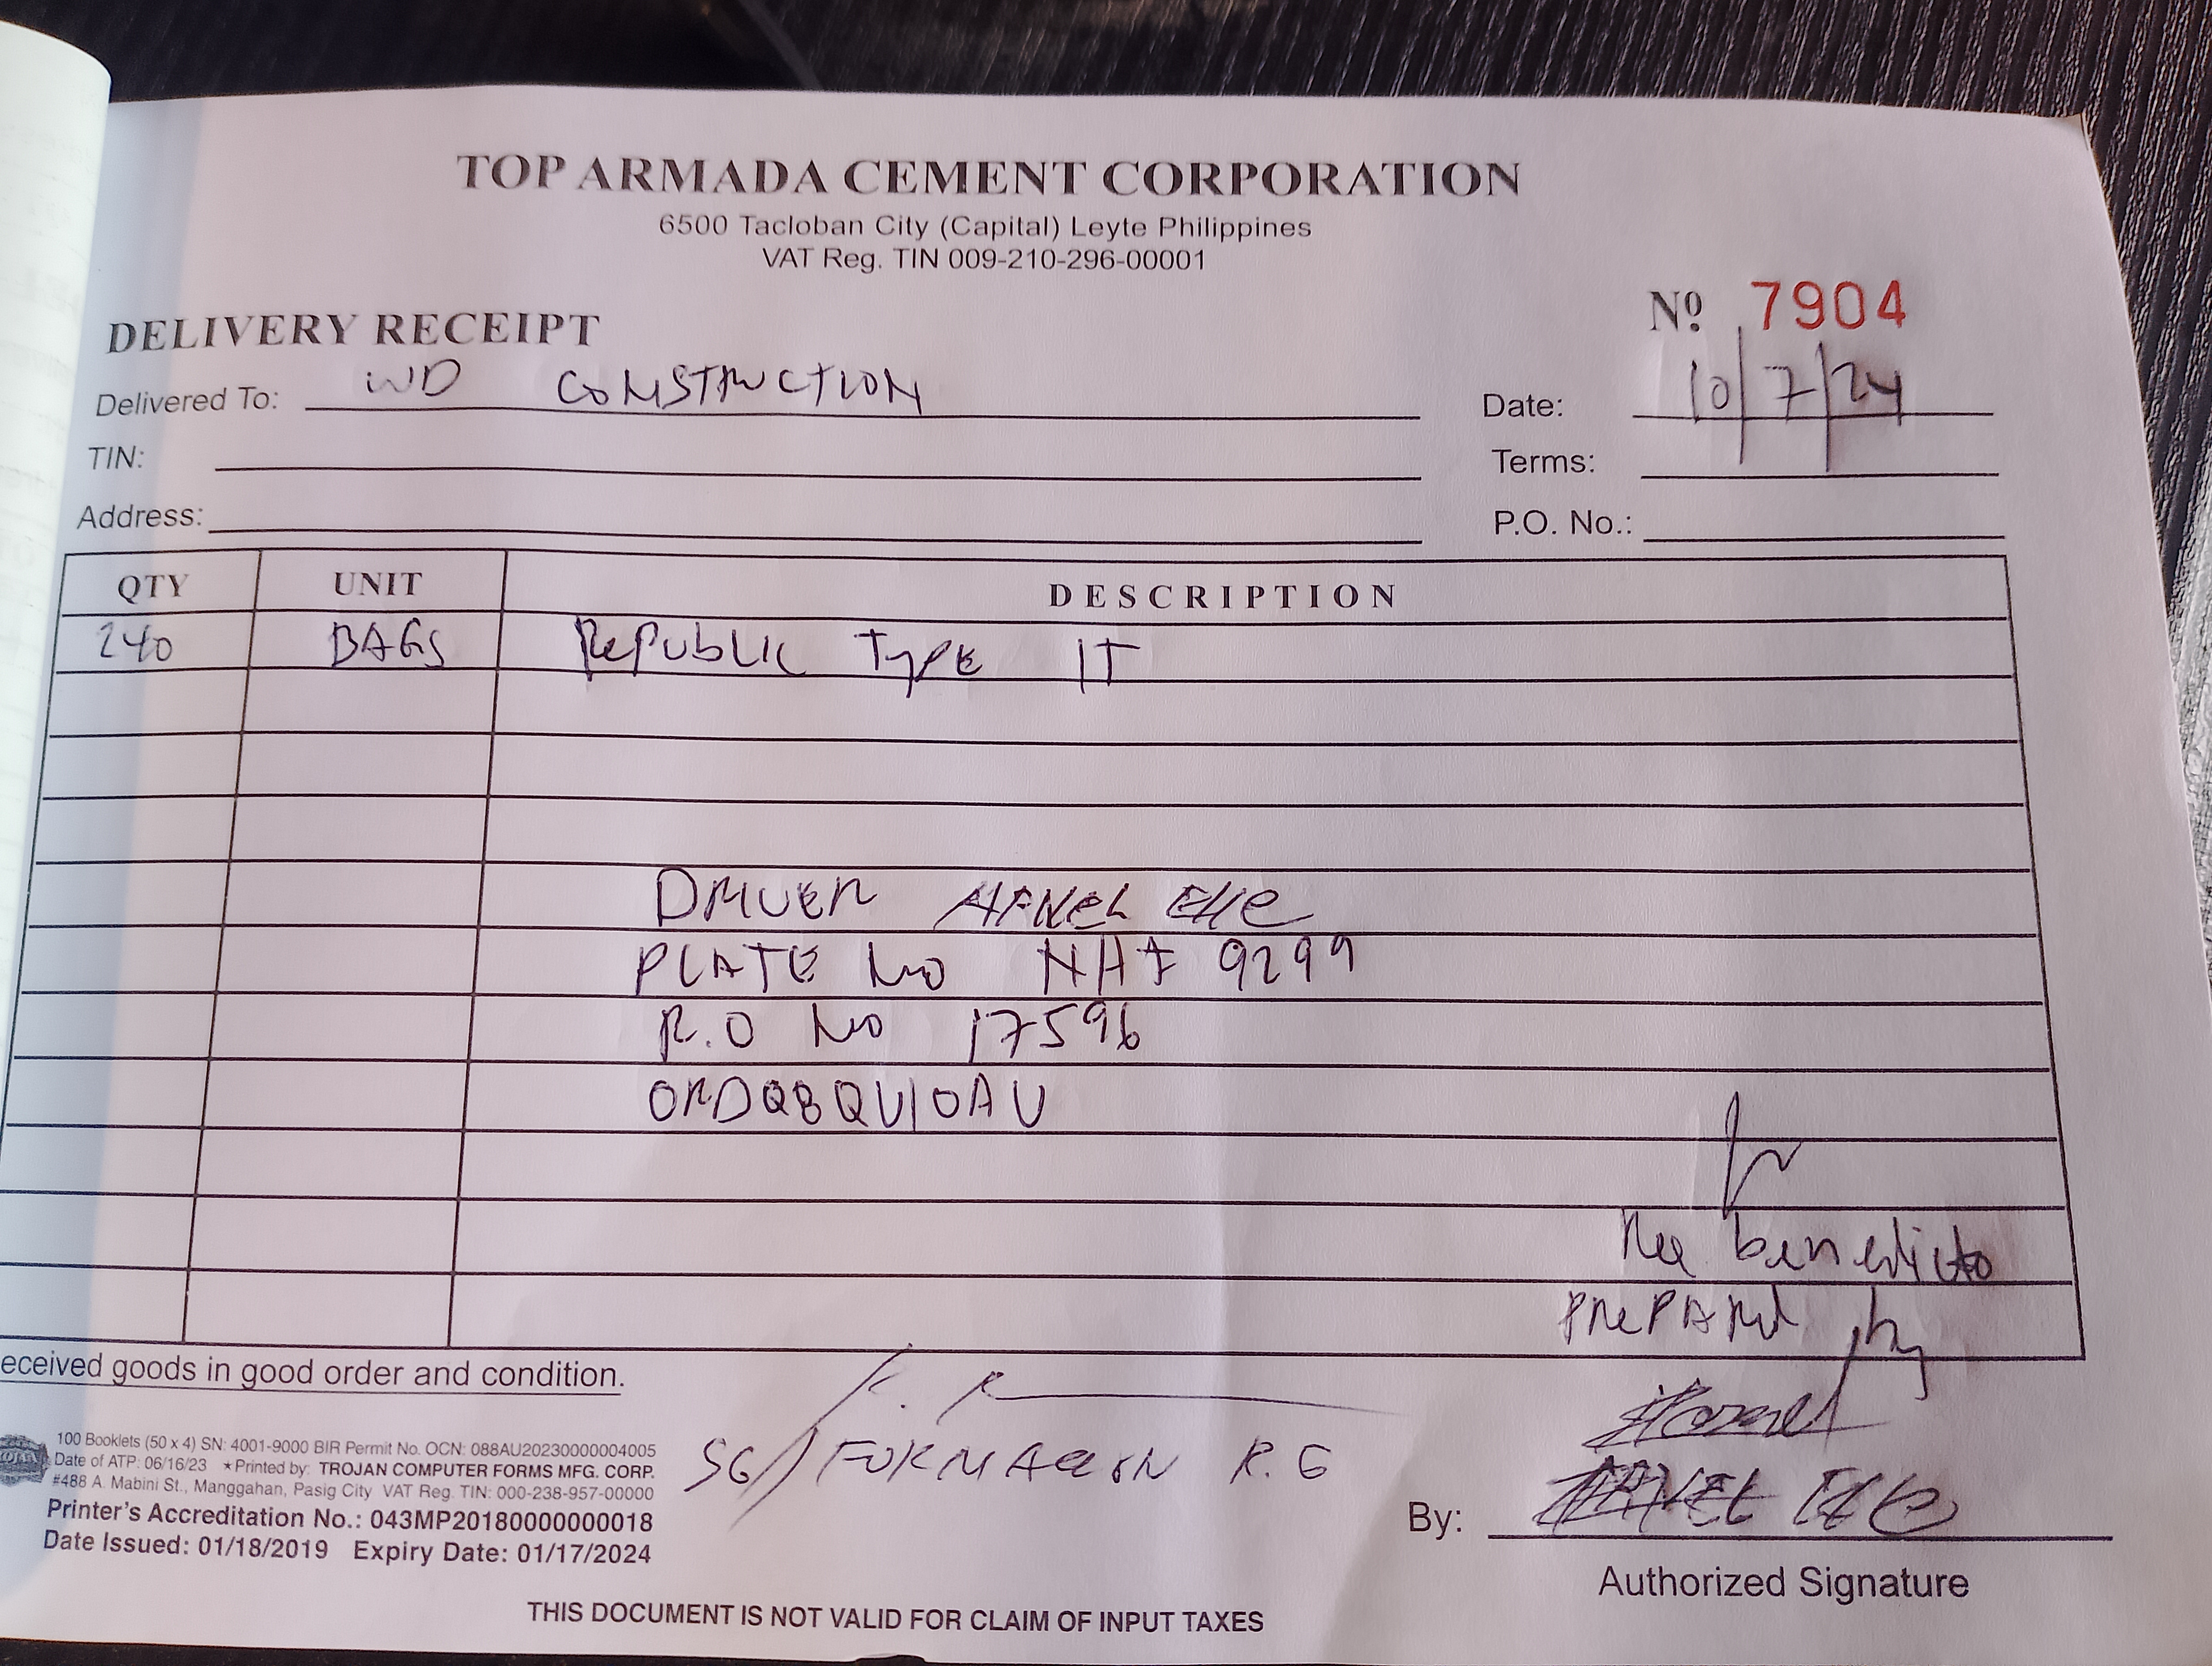 TOP ARMADA CEMENT CORPORATION
6500 Tacloban City (Capital) Leyte Philippines
VAT Reg. TIN 009-210-296-00001
DELIVERY RECEIPT
Nº 7904
Delivered To: WD CONSTRUCTION
Date: 10/7/24
TIN:
Terms:
Address:
P.O. No.:
QTY UNIT DESCRIPTION
240 BAGS Republic Type 1T
DRIVER ARNEL
PLATE No 9299
R.O No 17596
ORDQ8QU10AU
benedicto
PREPARED by
eceived goods in good order and condition.
SG/ R.G
100 Booklets (50 x 4) SN: 4001-9000 BIR Permit No. OCN: 088AU20230000004005
Date of ATP: 06/16/23 ★Printed by: TROJAN COMPUTER FORMS MFG. CORP.
#488 A. Mabini St., Manggahan, Pasig City VAT Reg. TIN: 000-238-957-00000
Printer's Accreditation No.: 043MP20180000000018
Date Issued: 01/18/2019 Expiry Date: 01/17/2024
By: ARNEL
Authorized Signature
THIS DOCUMENT IS NOT VALID FOR CLAIM OF INPUT TAXES